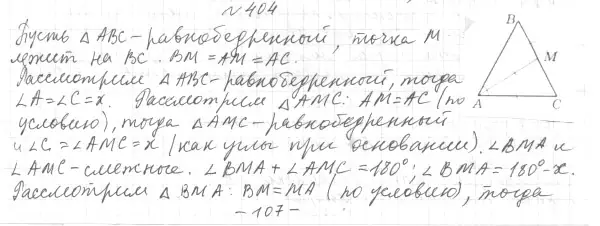 №404
Пусть △ABC - равнобедренный, точка M
лежит на BC. BM = AM = AC.
Рассмотрим △ABC - равнобедренный, тогда
∠A = ∠C = x. Рассмотрим △AMC: AM = AC (по
условию), тогда △AMC - равнобедренный
и ∠C = ∠AMC = x (как углы при основании). ∠BMA и
∠AMC - смежные. ∠BMA + ∠AMC = 180°; ∠BMA = 180° - x.
Рассмотрим △BMA: BM = MA (по условию), тогда
B
M
A
C
- 107 -